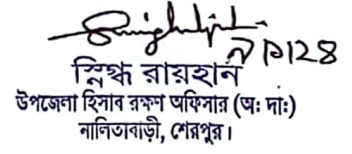 স্নিগ্ধ রায়হান
উপজেলা হিসাব রক্ষণ অফিসার (অ: দা:)
নালিতাবাড়ী, শেরপুর।